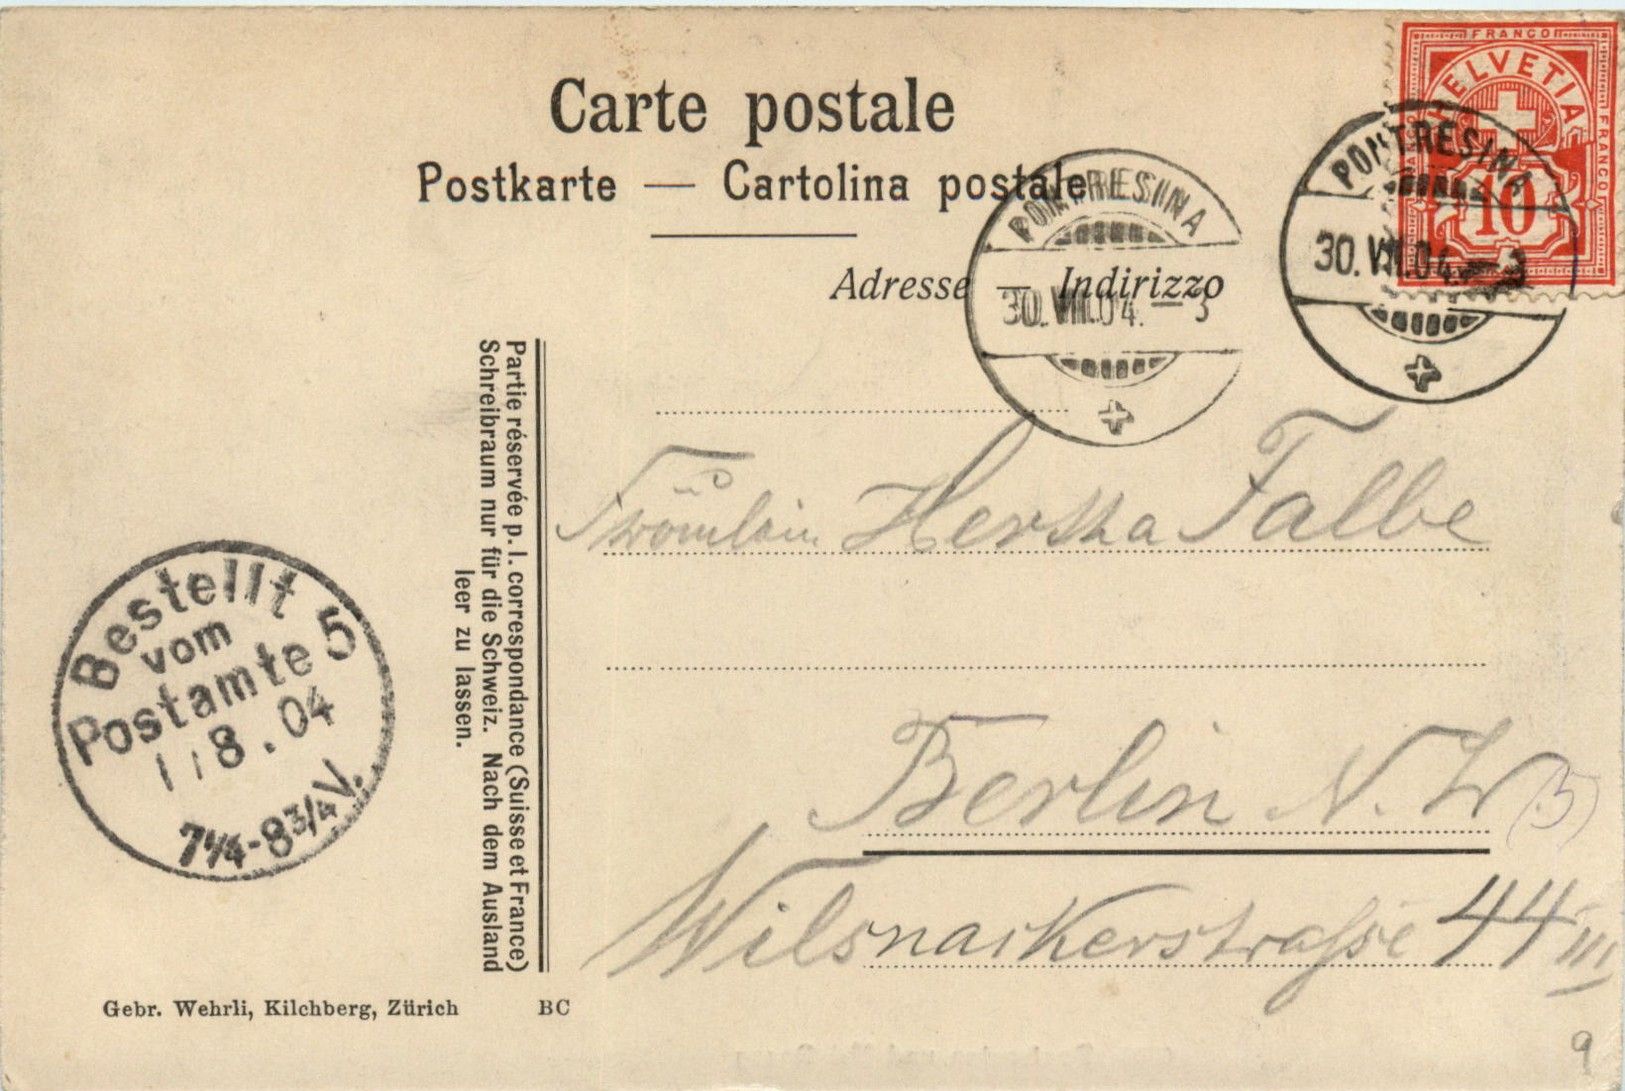 Carte postale
Postkarte — Cartolina postale
Adresse — Indirizzo
FRANCO
HELVETIA
FRANCO
10
PONTRESINA
30.VII.04.–3
PONTRESINA
30.VII.04.–3
Partie réservée p. l. correspondance (Suisse et France)
Schreibraum nur für die Schweiz. Nach dem Ausland
leer zu lassen.
Fräulein Hertha Falbe
Berlin N.W (5)
Wilsnackerstraße 44 III
Bestellt
vom
Postamte 5
1.8.04
7¼-8¾V.
Gebr. Wehrli, Kilchberg, Zürich BC
9